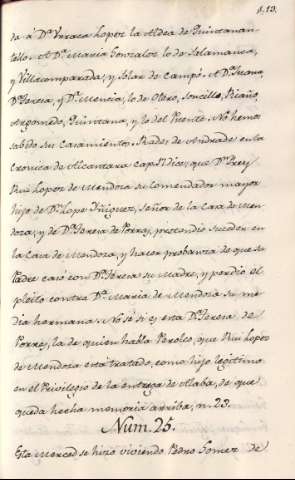 da á Dª Urraca Lopez la Aldea de Quintanan-
tello. A Dª Maria Gonzalez lo de Salamanca,
y Villacomparada, y solar de Campó. A Dª Juana,
Dª Teresa, y Dª Mencia, lo de Otero, Soncillo, Bìaño,
Argomedo, Quintana, y lo del Puente. No hemos
sabido su Casamiento. Rades de Andrade en la
Cronica de Alcantara dice, que Dn Frey
Rui Lopez de Mendoza su Comendador mayor
hijo de Dn Lope Iñiguez, señor de la Casa de Men-
doza, y de Dª Teresa de Porres, pretendio suceder en
la Casa de Mendoza, y hacer probanza de que su
Padre casó con Dª Teresa su Madre, y perdio el
pleito contra Dª Maria de Mendoza su me-
dia hermana. No sé si es esta Dª Teresa de
Porres, la de quien habla Pero que Rui Lopez
de Mendoza está tratado, como hijo legitimo
en el Privilegio de la entrega de Alaba, de que
queda hecha memoria arriba, n. 23.
Num. 25.
Esta Merced se hizo viviendo Pedro Gomez de